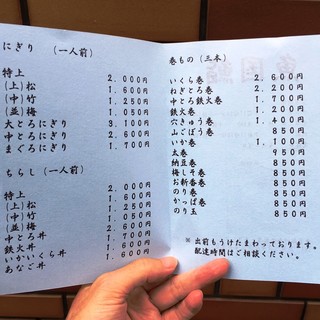 にぎり （一人前）
特上 2.000円
(上)松 1.600円
(中)竹 1.250円
(並)梅 1.050円
大とろにぎり 3.100円
中とろにぎり 2.600円
まぐろにぎり 1.700円
ちらし （一人前）
特上 2.000円
(上)松 1.600円
(中)竹 1.250円
(並)梅 1.050円
中とろ丼 2.600円
鉄火丼 1.700円
いかいくら丼 1.600円
あなご丼 1.600円
巻もの （三本）
いくら巻 2.600円
ねぎとろ巻 1.200円
中とろ鉄火巻 1.700円
鉄火巻 1.200円
穴きゅう巻 1.400円
山ごぼう巻 850円
いか巻 1.100円
太巻 950円
納豆巻 850円
梅しそ巻 850円
お新香巻 850円
のり巻 850円
かっぱ巻 850円
のり玉 850円
※ 出前もうけたまわっております。
配達時間はご相談ください。